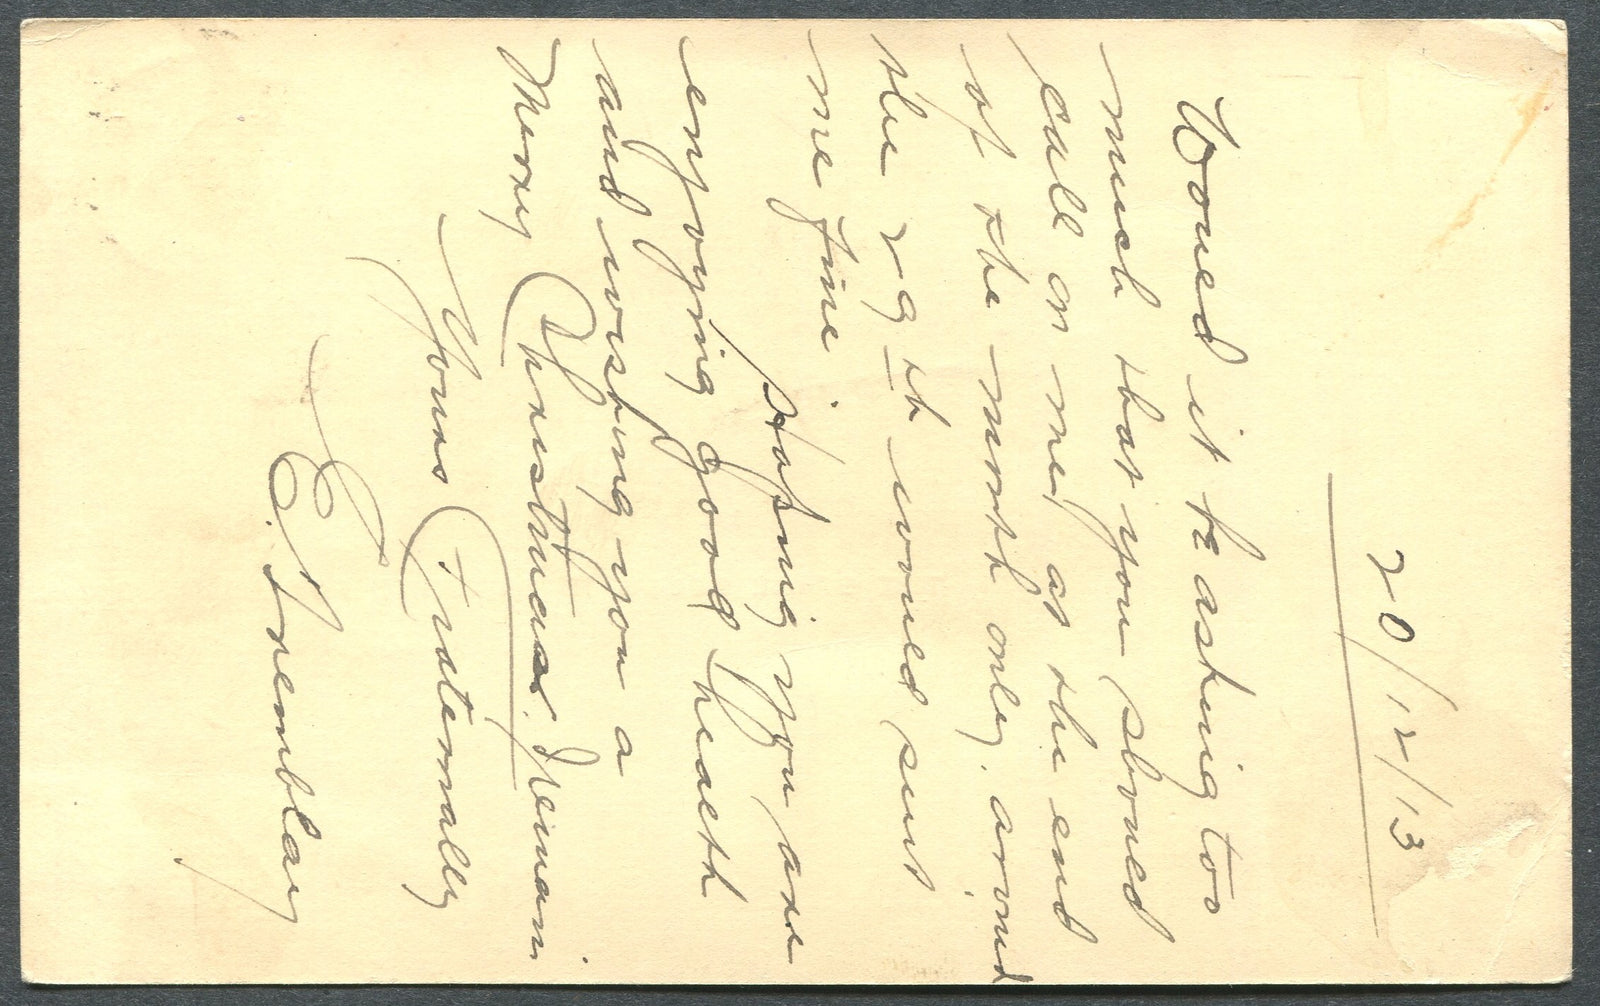 20/12/13
Woued it be asking too
much that you shoued
call on me, at the end
of the month only, around
the 29th woued suit
me fine.
Hoping you are
enjoying good health
and wishing you a
Merry Christmas. I remain
Yours Fraternally
E. Tremblay